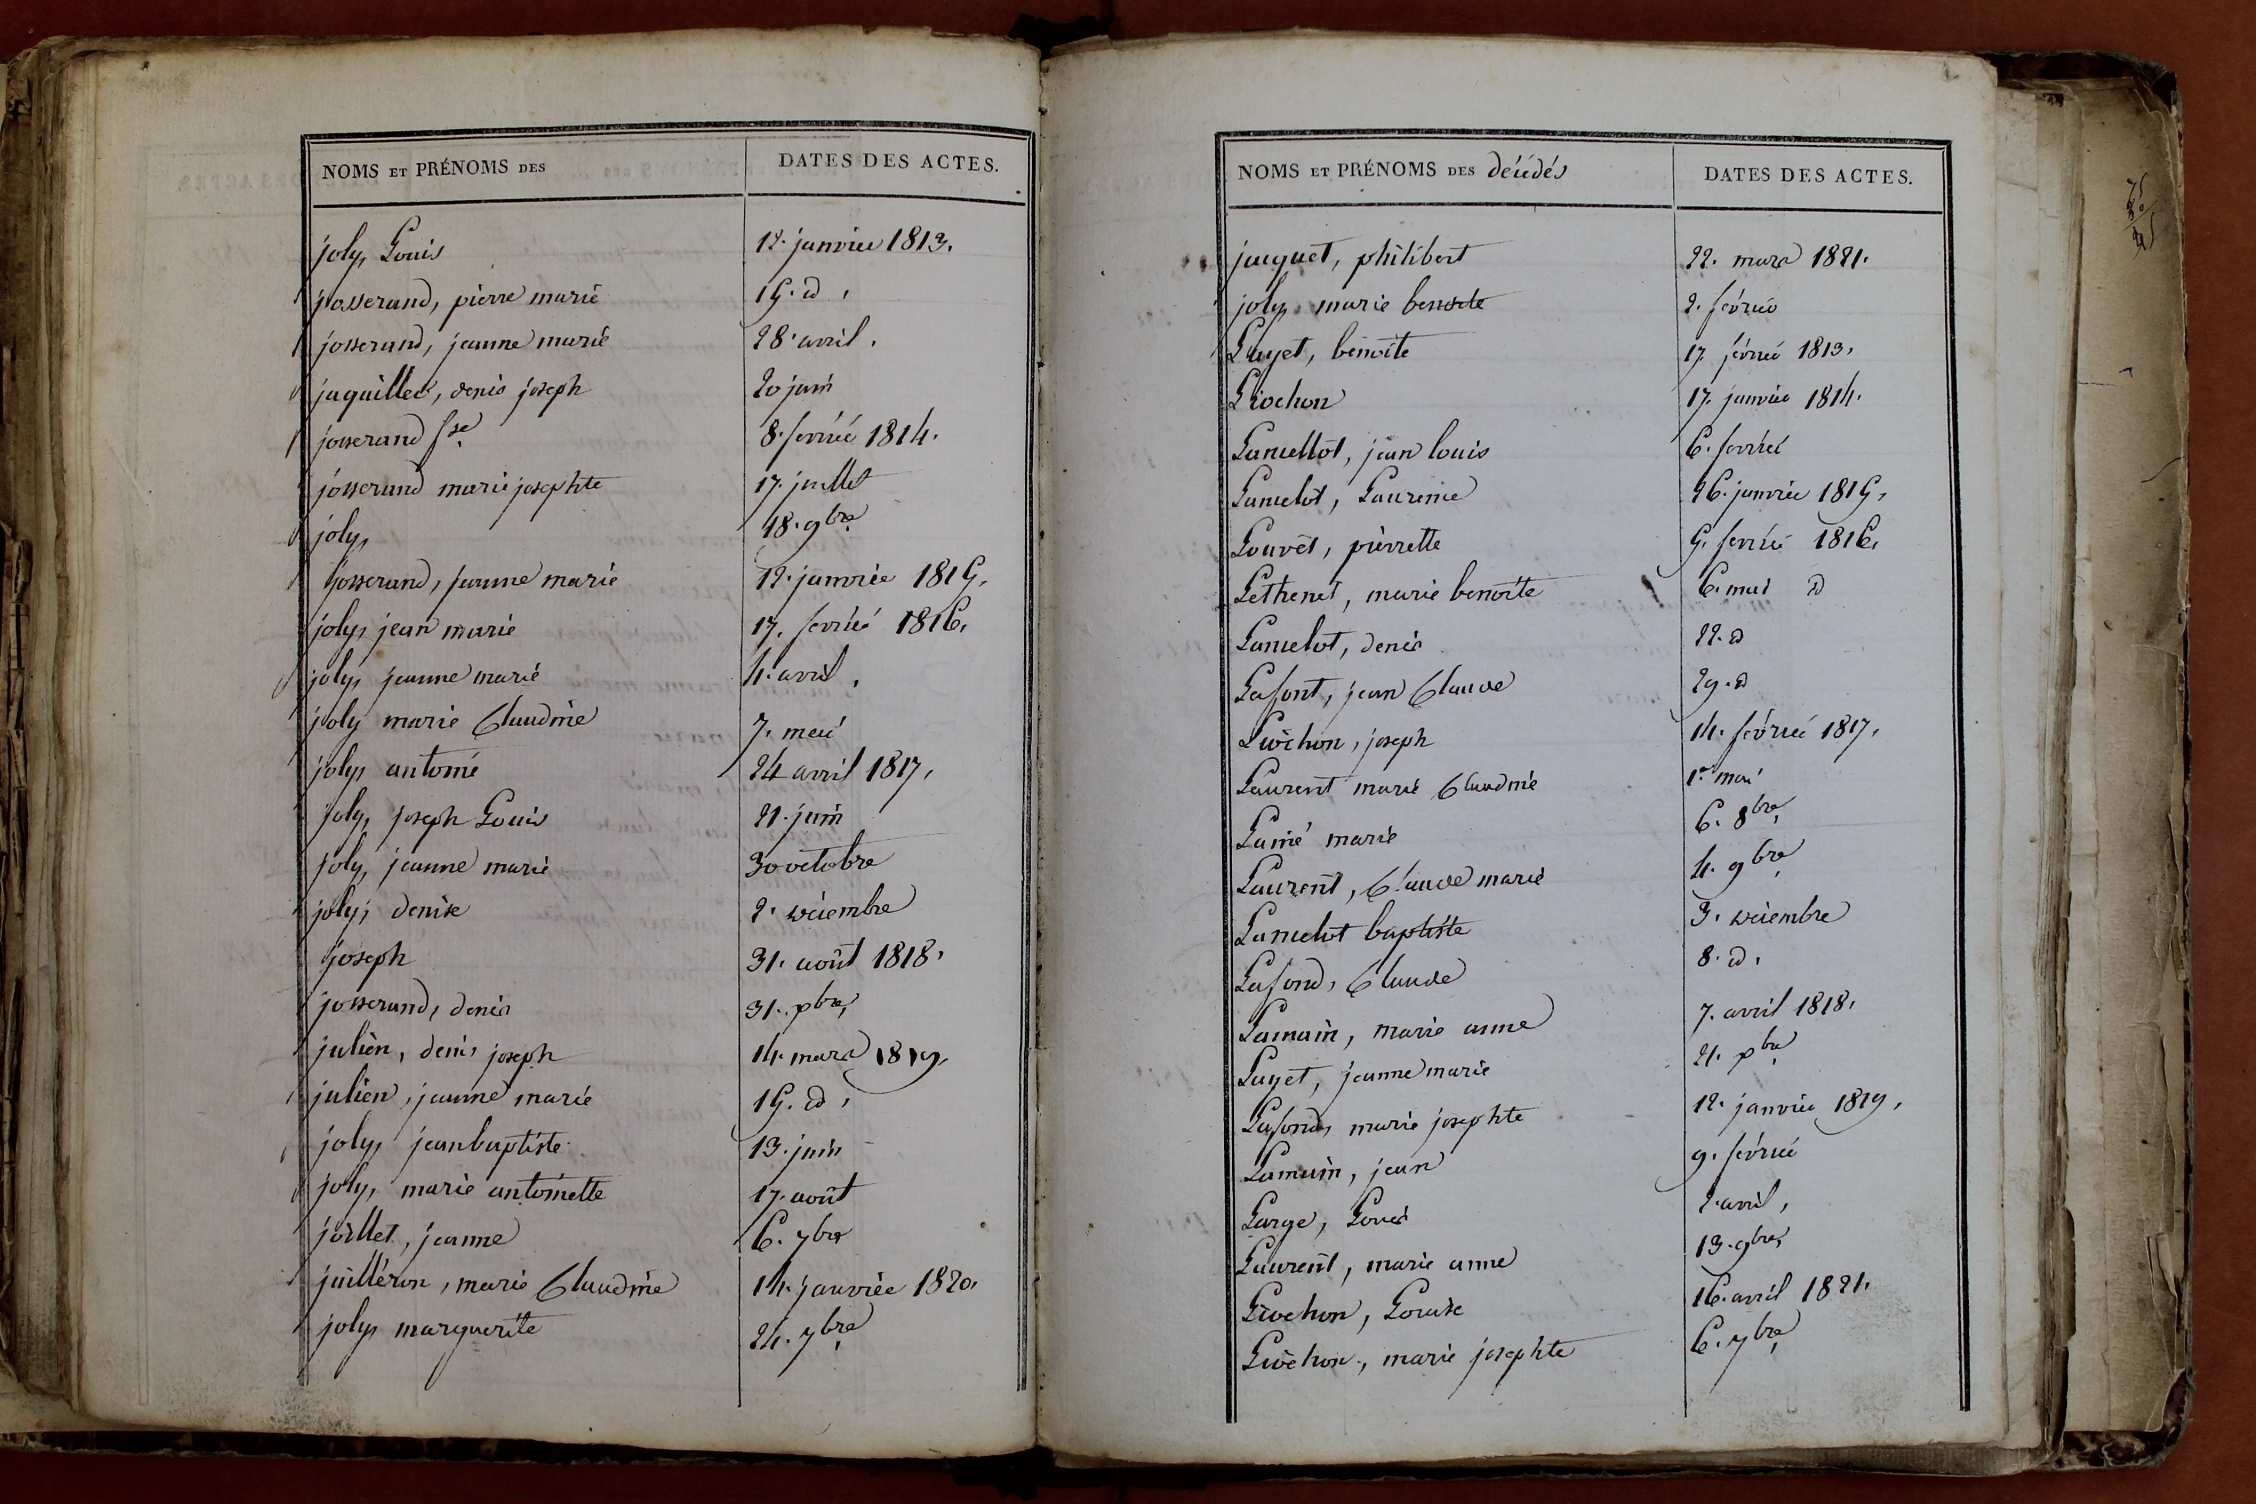 NOMS ET PRÉNOMS DES DATES DES ACTES.
joly, Louis 12. janvier 1813.
josserand, pierre marie 15. d.
josserand, jeanne marie 28. avril.
jaquillet, denis joseph 20 juin
josserand fse 8. fevrier 1814.
josserand marie josephte 17. juillet
joly, 18. 9bre
josserand, jeanne marie 12. janvier 1815.
joly, jean marie 17. fevrier 1816.
joly, jeanne marie 4. avril.
joly marie Claudine 7. mai
joly, antoine 24 avril 1817.
joly, joseph Louis 21. juin
joly, jeanne marie 30 octobre
joly, denise 2. décembre
joseph 31. août 1818.
josserand, denis 31. xbre,
julien, denis joseph 14. mars 1819.
julien, jeanne marie 15. d.
joly, jean baptiste 13. juin
joly, marie antoinette 17. août
joillet, jeanne 6. 7bre
juilléron, marie Claudine 14. janvier 1820.
joly, marguerite 24. 7bre
NOMS ET PRÉNOMS DES décédés DATES DES ACTES.
jacquet, philibert 22. mars 1821.
joly, marie benoite 2. février
Luyet, benoite 17. février 1813.
Liochon 17. janvier 1814.
Lancellot, jean louis 6. fevrier
Lancelot, Laurence 26. janvier 1815.
Louvet, pierrette 5. fevrier 1816.
Lethenet, marie benoite 6. mai d
Lancelot, denis 22. d
Lafont, jean Claude 29. d
Liochon, joseph 14. février 1817.
Laurent marie Claudine 1er mai
Lainé marie 6. 8bre,
Laurent, Claude marie 4. 9bre,
Lancelot baptiste 3. décembre
Lafond, Claude 8. d.
Lamain, marie anne 7. avril 1818.
Luyet, jeanne marie 21. xbre
Lafond, marie josephte 12. janvier 1819.
Lamain, jean 9. février
Large, Louis 2. avril,
Laurent, marie anne 13. 9bre,
Liochon, Louise 16. avril 1821.
Liochon, marie josephte 6. 7bre,